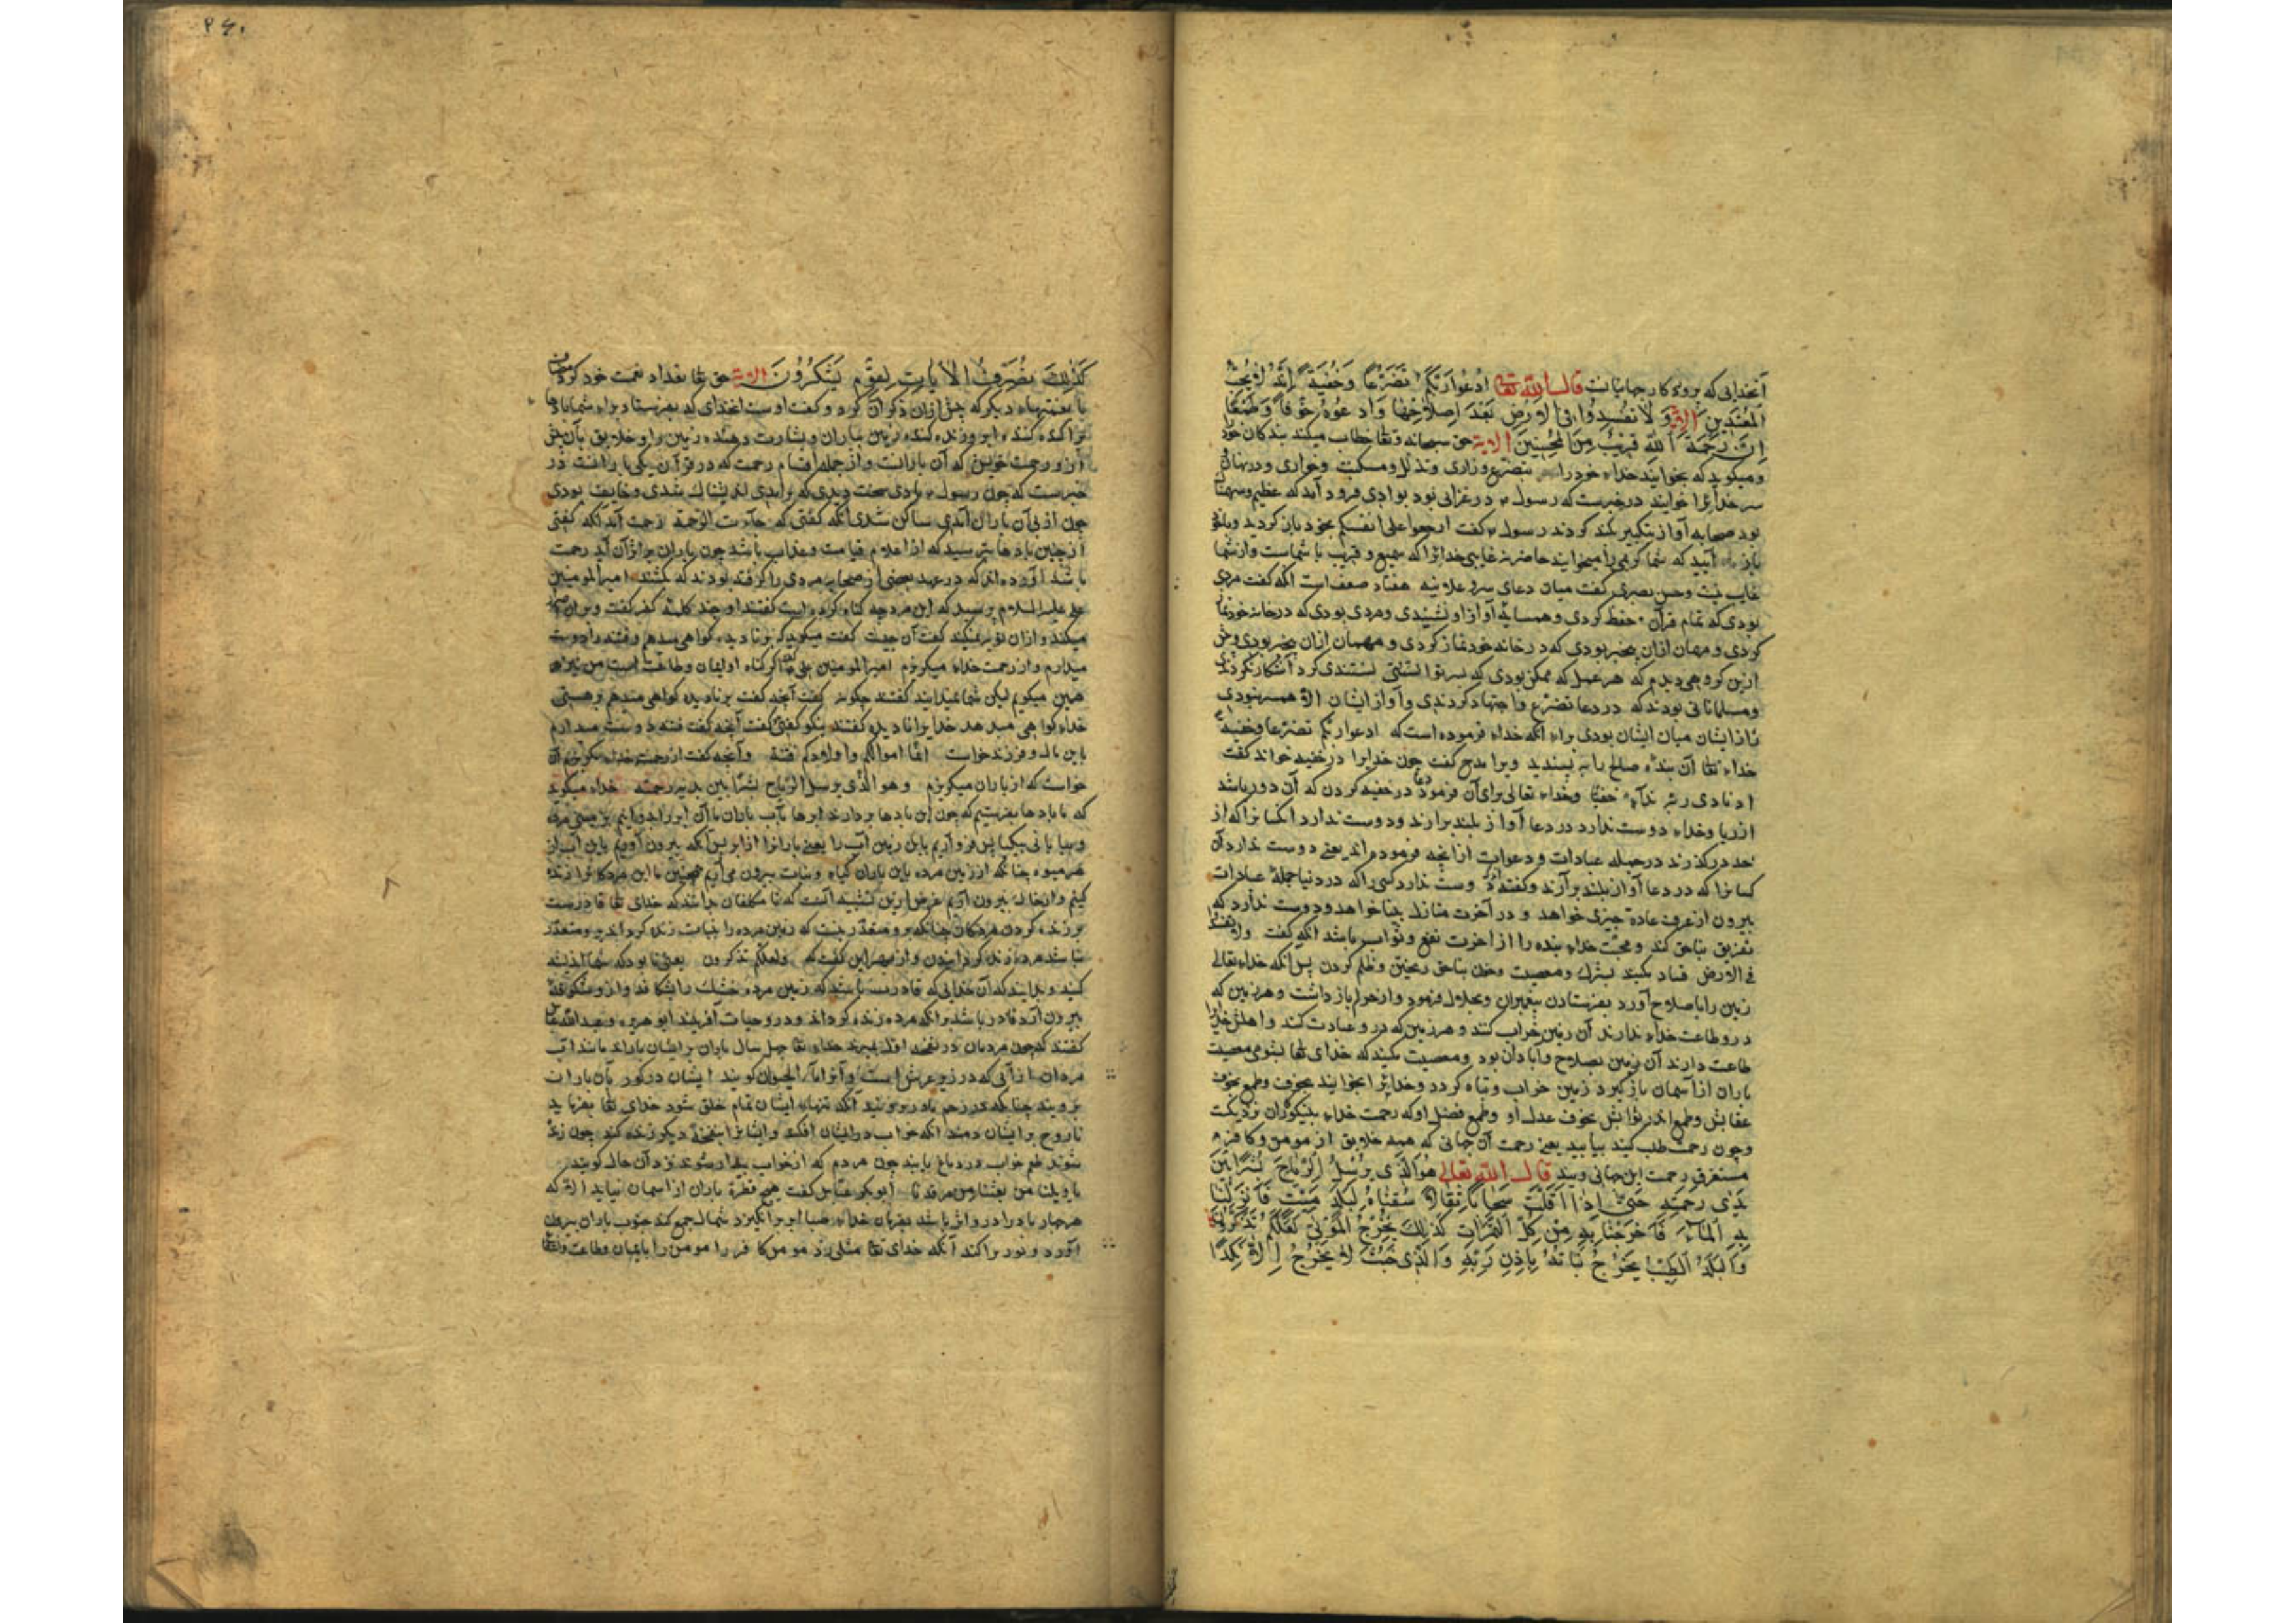 آنخدایی که پروردکار جهانیانست قال الله تعالی ادْعُوا رَبَّکُمْ تَضَرُّعًا وَخُفْیَةً اِنَّهُ لا یُحِبُّ
الْمُعْتَدِینَ الایة وَلا تُفْسِدُوا فِی الاَرْضِ بَعْدَ اِصْلاحِهَا وَادْعُوهُ خَوْفًا وَطَمَعًا
اِنَّ رَحْمَةَ اللّهِ قَرِیبٌ مِنَ الْمُحْسِنِینَ الایة حق سبحانه وتعا خطاب میکند بندکان خود
ومیکوید که بخوانید خداء خود را بتضرع وزاری وتذلل ومسکنت وخواری ودر نهانی
خدایرا خوانید در خبرست که رسول در غزایی بود بوادی فرود آمد که عظیم
بود صحابه آواز بتکبیر بلند کردند رسول کفت ارجعوا علی انفسکم بخود باز کردید
که شما کری را میخوانید حاضر نه غایبی خدایرا که سمیع وقریب با شماست واز شما
غایب نیست وحسن بصری کفت میان دعای سر وعلانیه هفتاد ضعف است آنکه کفت مردی
بودی که تمام قرآن حفظ کردی وهمسایه آواز او نشنیدی ومردی بودی که در خانه خود نماز
کردی ومهمان ازان بیخبر بودی که در خانه خود نماز کردی ومهمان ازان بیخبر بودی
ازین کروهی دیدم که هر عمل که ممکن بودی که بسر توانستی آشکارا نکردندی
ومسلمانانی بودند که در دعا تضرع واجتهاد کردندی وآواز ایشان الا همسه نبودی
راز ایشان میان ایشان بودی براء آنکه خداء فرموده است که ادعوا ربکم تضرعا وخفیة
خداء تعا آن بنده صالح را بپسندید ویرا مدح کفت چون خدایرا در خفیه خواند کفت
اذ نادی ربه نداء خفیا وخداء تعالی برای آن فرمود دعا در خفیه کردن که آن دور باشد
از ریا وخداء دوست ندارد در دعا آواز بلند برآرند ودوست ندارد آنکسانرا که از
حد درکذرند در جمله عبادات ودعوات ازآنچه فرموده اند یعنی دوست ندارد آن
کسانرا که در دعا آواز بلند برآرند وکفته اند دوست ندارد کسی را که در دنیا جمله عبادات
بیرون از عرف عادة چیزی خواهد ودر آخرت منازل خواهد ودوست ندارد که
تفریق بناحق کند ومحبت خداء بنده را از آخرت نفع وثواب باشد آنکه کفت ولا تفسدوا
فی الارض فساد مکنید بشرک ومعصیت وخون بناحق ریختن وظلم کردن پس آنکه خداء تعالی
زمین را باصلاح آورد بفرستادن پیغمبران وبحلال فرمود واز حرام باز داشت وهر زمین که
درو طاعت خداء ندارند آن زمین خراب کنند وهر زمین که درو عبادت کنند واهلش خدایرا
طاعت دارند آن زمین بصلاح وآبادان بود ومعصیت مکنید که خدای تعا بشومی معصیت
باران از آسمان باز کیرد زمین خراب وتباه کردد وخدایرا بخوانید بخوف وطمع بخوف
عقابش وطمع اندر ثوابش بخوف عدل او وطمع فضل او که رحمت خداء بنیکوکاران نزدیکست
وچون رحمت طلب کنید بیابید یعنی رحمت آن جهانی که همه خلایق از مومن وکافر
مستغرق رحمت این جهانی ویند قال الله تعالی هُوَ الَّذِی یُرْسِلُ الرِّیاحَ بُشْرًا بَیْنَ
یَدَیْ رَحْمَتِهِ حَتّی اِذَا اَقَلَّتْ سَحَابًا ثِقَالًا سُقْنَاهُ لِبَلَدٍ مَیِّتٍ فَاَنْزَلْنَا
بِهِ الْمَاءَ فَاَخْرَجْنَا بِهِ مِنْ کُلِّ الثَّمَرَاتِ کَذلِکَ نُخْرِجُ الْمَوْتی لَعَلَّکُمْ تَذَکَّرُونَ
وَالْبَلَدُ الطَّیِّبُ یَخْرُجُ نَبَاتُهُ بِاِذْنِ رَبِّهِ وَالَّذِی خَبُثَ لا یَخْرُجُ اِلَّا نَکِدًا
۲۶۰
کَذلِکَ نُصَرِّفُ الْآیاتِ لِقَوْمٍ یَشْکُرُونَ الایة حق تعا تعداد نعمت خود کرد
با نعمتهاء دیکر که پیش ازان ذکر آن کرد وکفت اوست آنخدای که بفرستاد براء شما بادها
پراکنده کننده ابر وزنده کننده زمین بباران وبشارت دهنده زمین را وخلایق بآن پیش
از رحمت خویش که آن بارانست واز جمله اقسام رحمت که در قرآن یکی بارانست در
خبرست که چون رسول بادی سخت دیدی که برآمدی اندیشناک شدی وخایف بودی
چون از پی آن باران آمدی ساکن شدی آنکه کفتی که جاءت الرحمة رحمت آمد آنکه کفتی
از چنین بادها بترسید که از اعلام قیامت وعذاب باشد چون باران بر اثر آن آید رحمت
باشد آورده اند که در عهد بعضی از صحابه مردی را کرفته بودند که بکشند امیرالمومنین
علی علیه السلام پرسید که این مرد چه کناه کرده است کفتند او چند کلمه کفر کفت
میکند وازان توبه نمیکند کفت آن چیست کفت میکوید که بر نادیده کواهی میدهم وفتنه را دوست
میدارم واز رحمت خداء میکریزم امیرالمومنین علی کفت اکر کناه او ایمان وطاعت است من نیز
همین میکویم لیکن شما نمیدانید کفتند چکونه کفت آنچه کفت بر نادیده کواهی میدهم بر هستی
خداء کواهی میدهد خدایرا نادیده کفتند نیکو کفتی کفت آنچه کفت فتنه دوست میدارم
باین مال وفرزند خواست انما اموالکم واولادکم فتنة وآنچه کفت از رحمت خداء میکریزم آن
خواست که از باران میکریزم وهو الذی یرسل الریاح بشرا بین یدی رحمته خداء میکوید
که ما بادها بفرستیم که چون این بادها بردارند ابرها بآب باران ما آن ابر را برانیم بزمینی مرده
وبیابانی پس فرو آریم باین زمین آب را یعنی بارانرا از ابر پس آنکه بیرون آوریم باین آب از
هر میوه چنانکه از زمین مرده باین باران کیاه ونبات بیرون می آریم همچنین ما این مردکانرا زنده
کنیم واز خاک بیرون آریم غرض ازین تشبیه آنست که تا مکلفان بدانند که خدای تعا قادرست
بر زنده کردن مردکان چنانکه برو متعذر نیست که زمین مرده را بنبات زنده کرداند برو متعذر
نباشد مرده زنده کردانیدن واز بهر این کفت که ولعلکم تذکرون یعنی تا بود که شما اندیشه
کنید وبدانید که آن خدایی که قادر باشد که زمین مرده خشک را بشکافد وازو شکوفه
بیرون آرد قادر باشد برآنکه مرده زنده کرداند ودرو حیات آفریند ابو هریره وعبدالله عباس
کفتند که چون مردمان در نفخه اول بمیرند خداء تعا چهل سال باران بر ایشان باراند مانند آب
مردان از آبی که در زیر عرش است وآنرا ماء الحیوان کویند ایشان در کور بآن باران
برویند چنانکه در رحم مادر برویند آنکه تنهاء ایشان تمام خلق شود خدای تعا بفرماید
تا روح بر ایشان دمند آنکه خواب در ایشان افکند وایشانرا بنفخه دیکر زنده کند چون زنده
شوند طعم خواب در دماغ یابند چون مردم که از خواب بیدار شوند در آن حال کویند
یا ویلنا من بعثنا من مرقدنا ابوبکر عیاش کفت هیچ قطره باران از آسمان نیاید الا که
هر چهار باد را درو اثر باشد بفرمان خداء صبا ابر برانکیزد شمال جمع کند جنوب باران بیرون
آورد ودبور پراکند آنکه خدای تعا مثلی زد مومن کافر را مومن را بایمان وطاعت